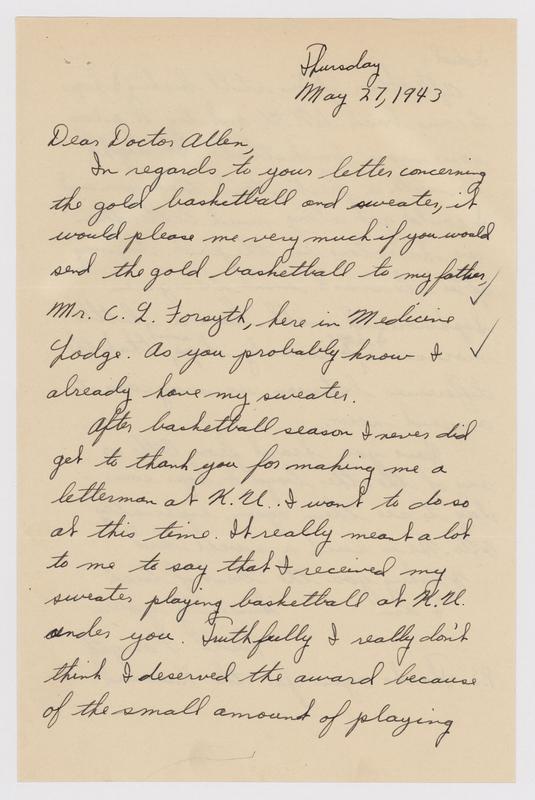 Thursday
May 27, 1943
Dear Doctor Allen,
In regards to your letter concerning
the gold basketball and sweater, it
would please me very much if you would
send the gold basketball to my father,
Mr. C. L. Forsyth, here in Medicine
Lodge. As you probably know I
already have my sweater.
After basketball season I never did
get to thank you for making me a
letterman at K.U.. I want to do so
at this time. It really meant a lot
to me to say that I received my
sweater playing basketball at K.U.
under you. Truthfully I really don't
think I deserved the award because
of the small amount of playing